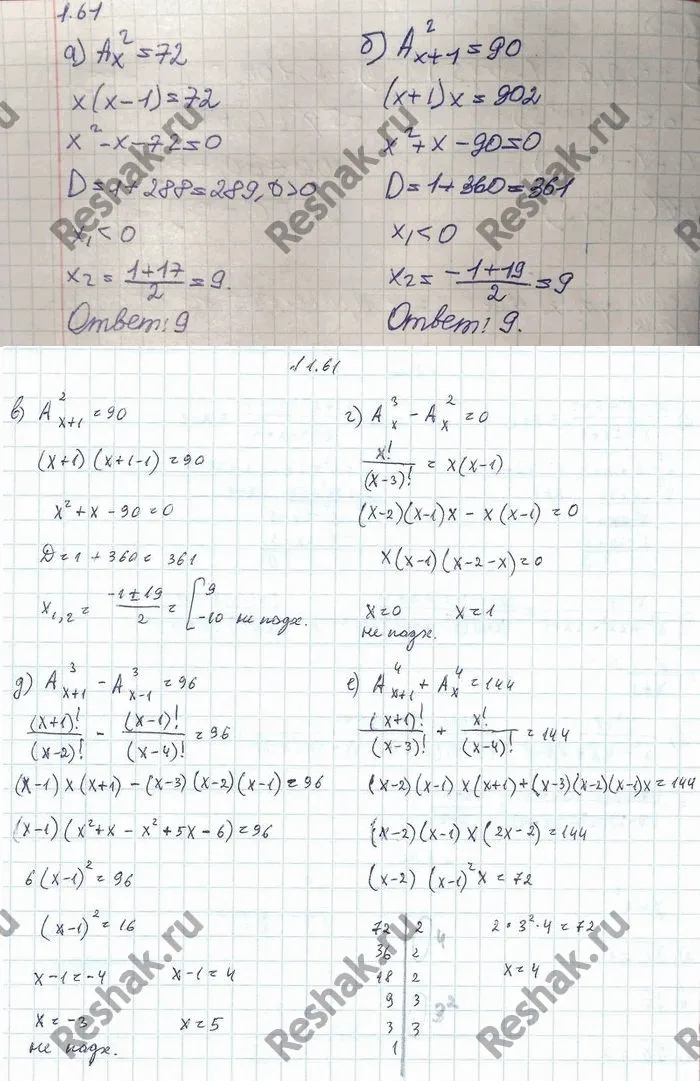 1.61
а) Aₓ² = 72
x(x-1)=72
x²-x-72=0
D=1+288=289, D>0
x₁<0
x₂ = (1+17)/2 = 9.
Ответ: 9
б) A²ₓ₊₁ = 90
(x+1)x = 902
x²+x-90=0
D=1+360=361
x₁<0
x₂ = (-1+19)/2 = 9
Ответ: 9.
№1.61
в) A²ₓ₊₁ = 90
(x+1)(x+1-1)=90
x²+x-90=0
D=1+360=361
x₁,₂ = (-1±19)/2 = [ 9
-10 не подх.
г) A³ₓ - A²ₓ = 0
x!/(x-3)! = x(x-1)
(x-2)(x-1)x - x(x-1)=0
x(x-1)(x-2-x)=0
x=0 x=1
не подх.
д) A³ₓ₊₁ - A³ₓ₋₁ = 96
(x+1)!/(x-2)! - (x-1)!/(x-4)! = 96
(x-1)x(x+1)-(x-3)(x-2)(x-1)=96
(x-1)(x²+x-x²+5x-6)=96
6(x-1)²=96
(x-1)²=16
x-1=-4 x-1=4
x=-3 x=5
не подх.
е) A⁴ₓ₊₁ + A⁴ₓ = 144
(x+1)!/(x-3)! + x!/(x-4)! = 144
(x-2)(x-1)x(x+1)+(x-3)(x-2)(x-1)x=144
(x-2)(x-1)x(2x-2)=144
(x-2)(x-1)²x=72
72 2
36 2 4
18 2
9 3
3 3
1
2·3²·4=72
x=4
Reshak.ru
Reshak.ru
Reshak.ru
Reshak.ru
Reshak.ru
Reshak.ru